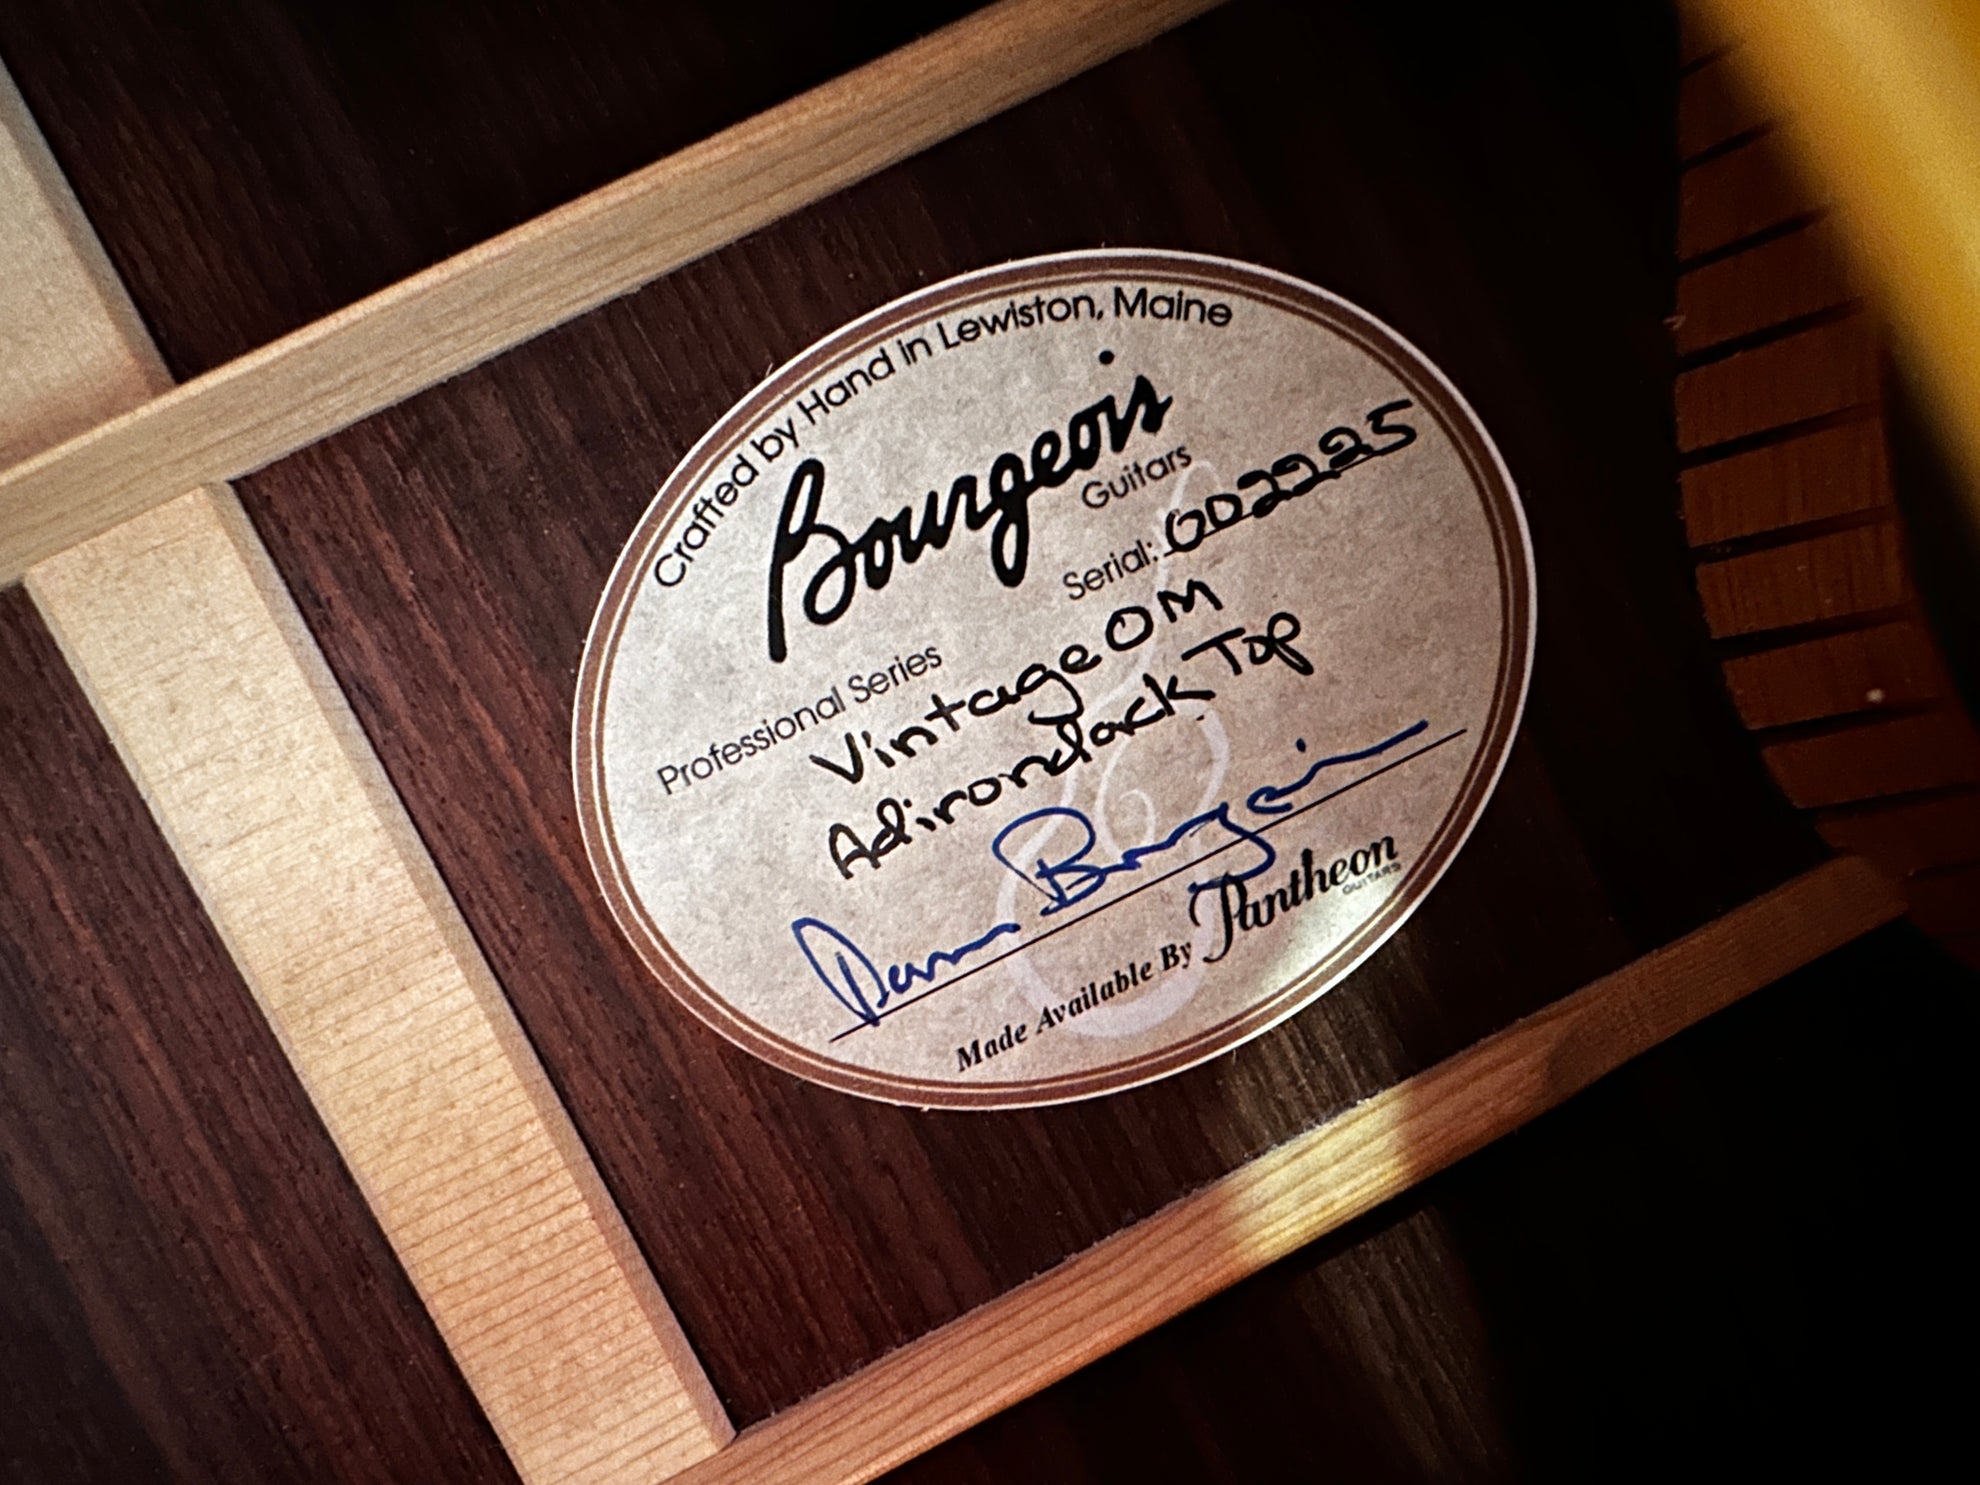 Crafted by Hand in Lewiston, Maine
Bourgeois
Guitars
Serial: 002225
Professional Series
Vintage OM
Adirondack Top
Dana Bourgeois
Made Available By Pantheon
GUITARS